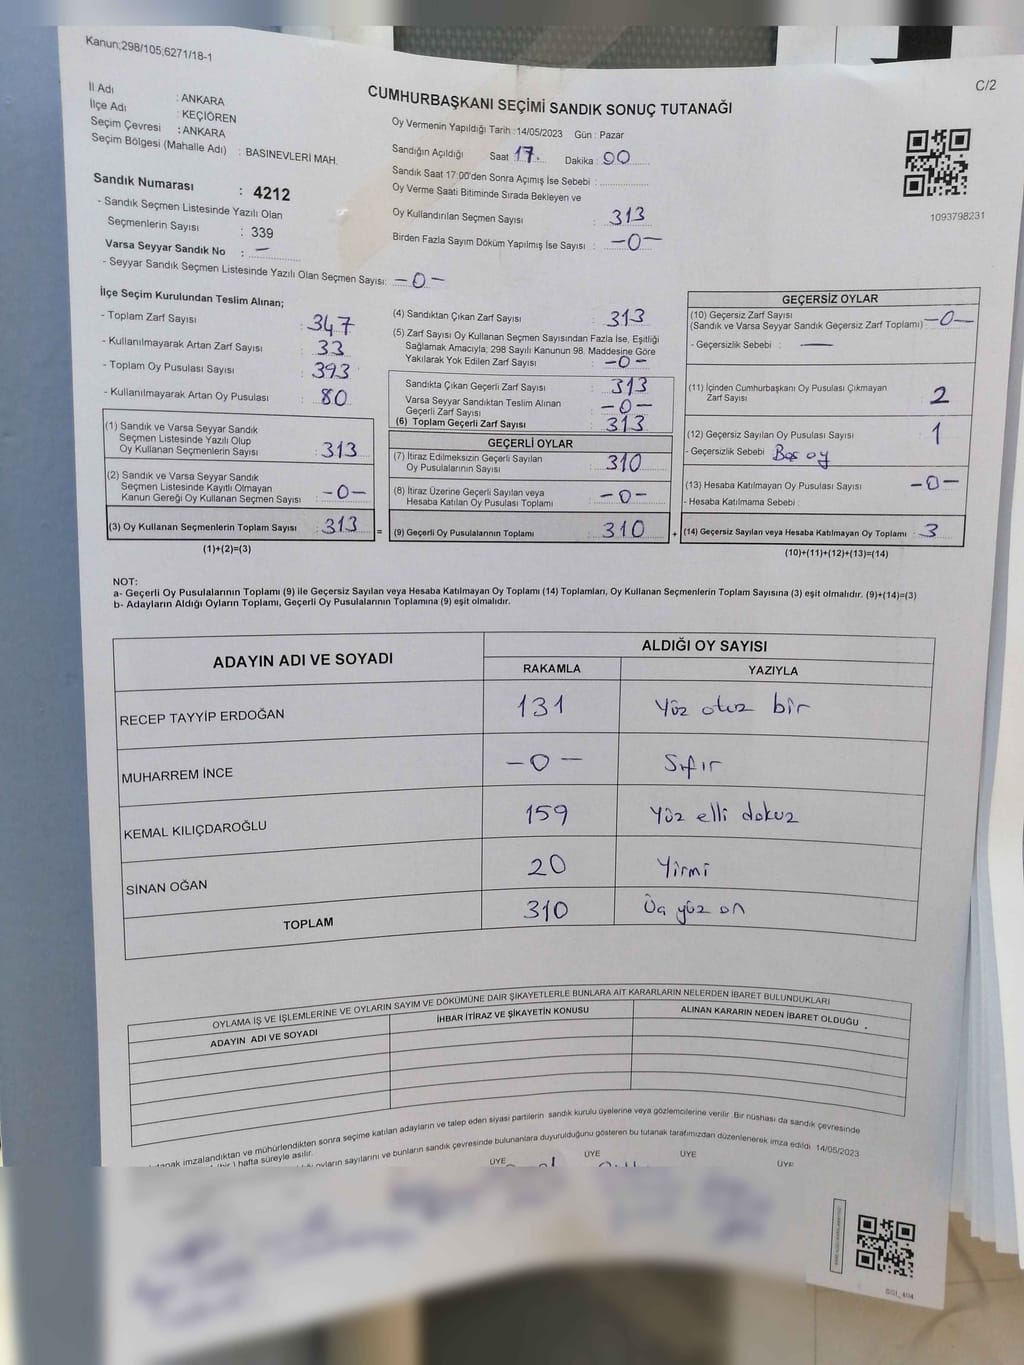 Kanun;298/105,6271/18-1
C/2
CUMHURBAŞKANI SEÇİMİ SANDIK SONUÇ TUTANAĞI
İl Adı : ANKARA
İlçe Adı : KEÇİÖREN
Seçim Çevresi : ANKARA
Seçim Bölgesi (Mahalle Adı) : BASINEVLERİ MAH.
Sandık Numarası : 4212
- Sandık Seçmen Listesinde Yazılı Olan
Seçmenlerin Sayısı : 339
Varsa Seyyar Sandık No : —
- Seyyar Sandık Seçmen Listesinde Yazılı Olan Seçmen Sayısı: -0-
Oy Vermenin Yapıldığı Tarih : 14/05/2023 Gün : Pazar
Sandığın Açıldığı Saat 17. Dakika : 00
Sandık Saat 17:00'den Sonra Açımış İse Sebebi :
Oy Verme Saati Bitiminde Sırada Bekleyen ve
Oy Kullandırılan Seçmen Sayısı : 313
Birden Fazla Sayım Döküm Yapılmış İse Sayısı : -0-
1093798231
İlçe Seçim Kurulundan Teslim Alınan;
- Toplam Zarf Sayısı : 347
- Kullanılmayarak Artan Zarf Sayısı : 33
- Toplam Oy Pusulası Sayısı : 393
- Kullanılmayarak Artan Oy Pusulası : 80
(1) Sandık ve Varsa Seyyar Sandık
Seçmen Listesinde Yazılı Olup
Oy Kullanan Seçmenlerin Sayısı : 313
(2) Sandık ve Varsa Seyyar Sandık
Seçmen Listesinde Kayıtlı Olmayan
Kanun Gereği Oy Kullanan Seçmen Sayısı : -0-
(3) Oy Kullanan Seçmenlerin Toplam Sayısı : 313 =
(1)+(2)=(3)
(4) Sandıktan Çıkan Zarf Sayısı : 313
(5) Zarf Sayısı Oy Kullanan Seçmen Sayısından Fazla İse, Eşitliği
Sağlamak Amacıyla; 298 Sayılı Kanunun 98. Maddesine Göre
Yakılarak Yok Edilen Zarf Sayısı : -0-
Sandıkta Çıkan Geçerli Zarf Sayısı : 313
Varsa Seyyar Sandıktan Teslim Alınan
Geçerli Zarf Sayısı : -0-
(6) Toplam Geçerli Zarf Sayısı : 313
GEÇERLİ OYLAR
(7) İtiraz Edilmeksizin Geçerli Sayılan
Oy Pusulalarının Sayısı : 310
(8) İtiraz Üzerine Geçerli Sayılan veya
Hesaba Katılan Oy Pusulası Toplamı : -0-
(9) Geçerli Oy Pusulalarının Toplamı : 310 +
GEÇERSİZ OYLAR
(10) Geçersiz Zarf Sayısı
(Sandık ve Varsa Seyyar Sandık Geçersiz Zarf Toplamı) : -0-
- Geçersizlik Sebebi : —
(11) İçinden Cumhurbaşkanı Oy Pusulası Çıkmayan
Zarf Sayısı 2
(12) Geçersiz Sayılan Oy Pusulası Sayısı : 1
- Geçersizlik Sebebi Boş oy
(13) Hesaba Katılmayan Oy Pusulası Sayısı : -0-
- Hesaba Katılmama Sebebi :
(14) Geçersiz Sayılan veya Hesaba Katılmayan Oy Toplamı : 3
(10)+(11)+(12)+(13)=(14)
NOT:
a- Geçerli Oy Pusulalarının Toplamı (9) ile Geçersiz Sayılan veya Hesaba Katılmayan Oy Toplamı (14) Toplamları, Oy Kullanan Seçmenlerin Toplam Sayısına (3) eşit olmalıdır. (9)+(14)=(3)
b- Adayların Aldığı Oyların Toplamı, Geçerli Oy Pusulalarının Toplamına (9) eşit olmalıdır.
ADAYIN ADI VE SOYADI
ALDIĞI OY SAYISI
RAKAMLA YAZIYLA
RECEP TAYYİP ERDOĞAN 131 Yüz otuz bir
MUHARREM İNCE -0- Sıfır
KEMAL KILIÇDAROĞLU 159 Yüz elli dokuz
SİNAN OĞAN 20 Yirmi
TOPLAM 310 Üç yüz on
OYLAMA İŞ VE İŞLEMLERİNE VE OYLARIN SAYIM VE DÖKÜMÜNE DAİR ŞİKAYETLERLE BUNLARA AİT KARARLARIN NELERDEN İBARET BULUNDUKLARI
ADAYIN ADI VE SOYADI
İHBAR İTİRAZ VE ŞİKAYETİN KONUSU
ALINAN KARARIN NEDEN İBARET OLDUĞU
imzalandıktan ve mühürlendikten sonra seçime katılan adayların ve talep eden siyasi partilerin sandık kurulu üyelerine veya gözlemcilerine verilir .Bir nüshası da sandık çevresinde
hafta süreyle asılır.
oyların sayılarını ve bunların sandık çevresinde bulunanlara duyurulduğunu gösteren bu tutanak tarafımızdan düzenlenerek imza edildi. 14/05/2023
ÜYE ÜYE ÜYE ÜYE